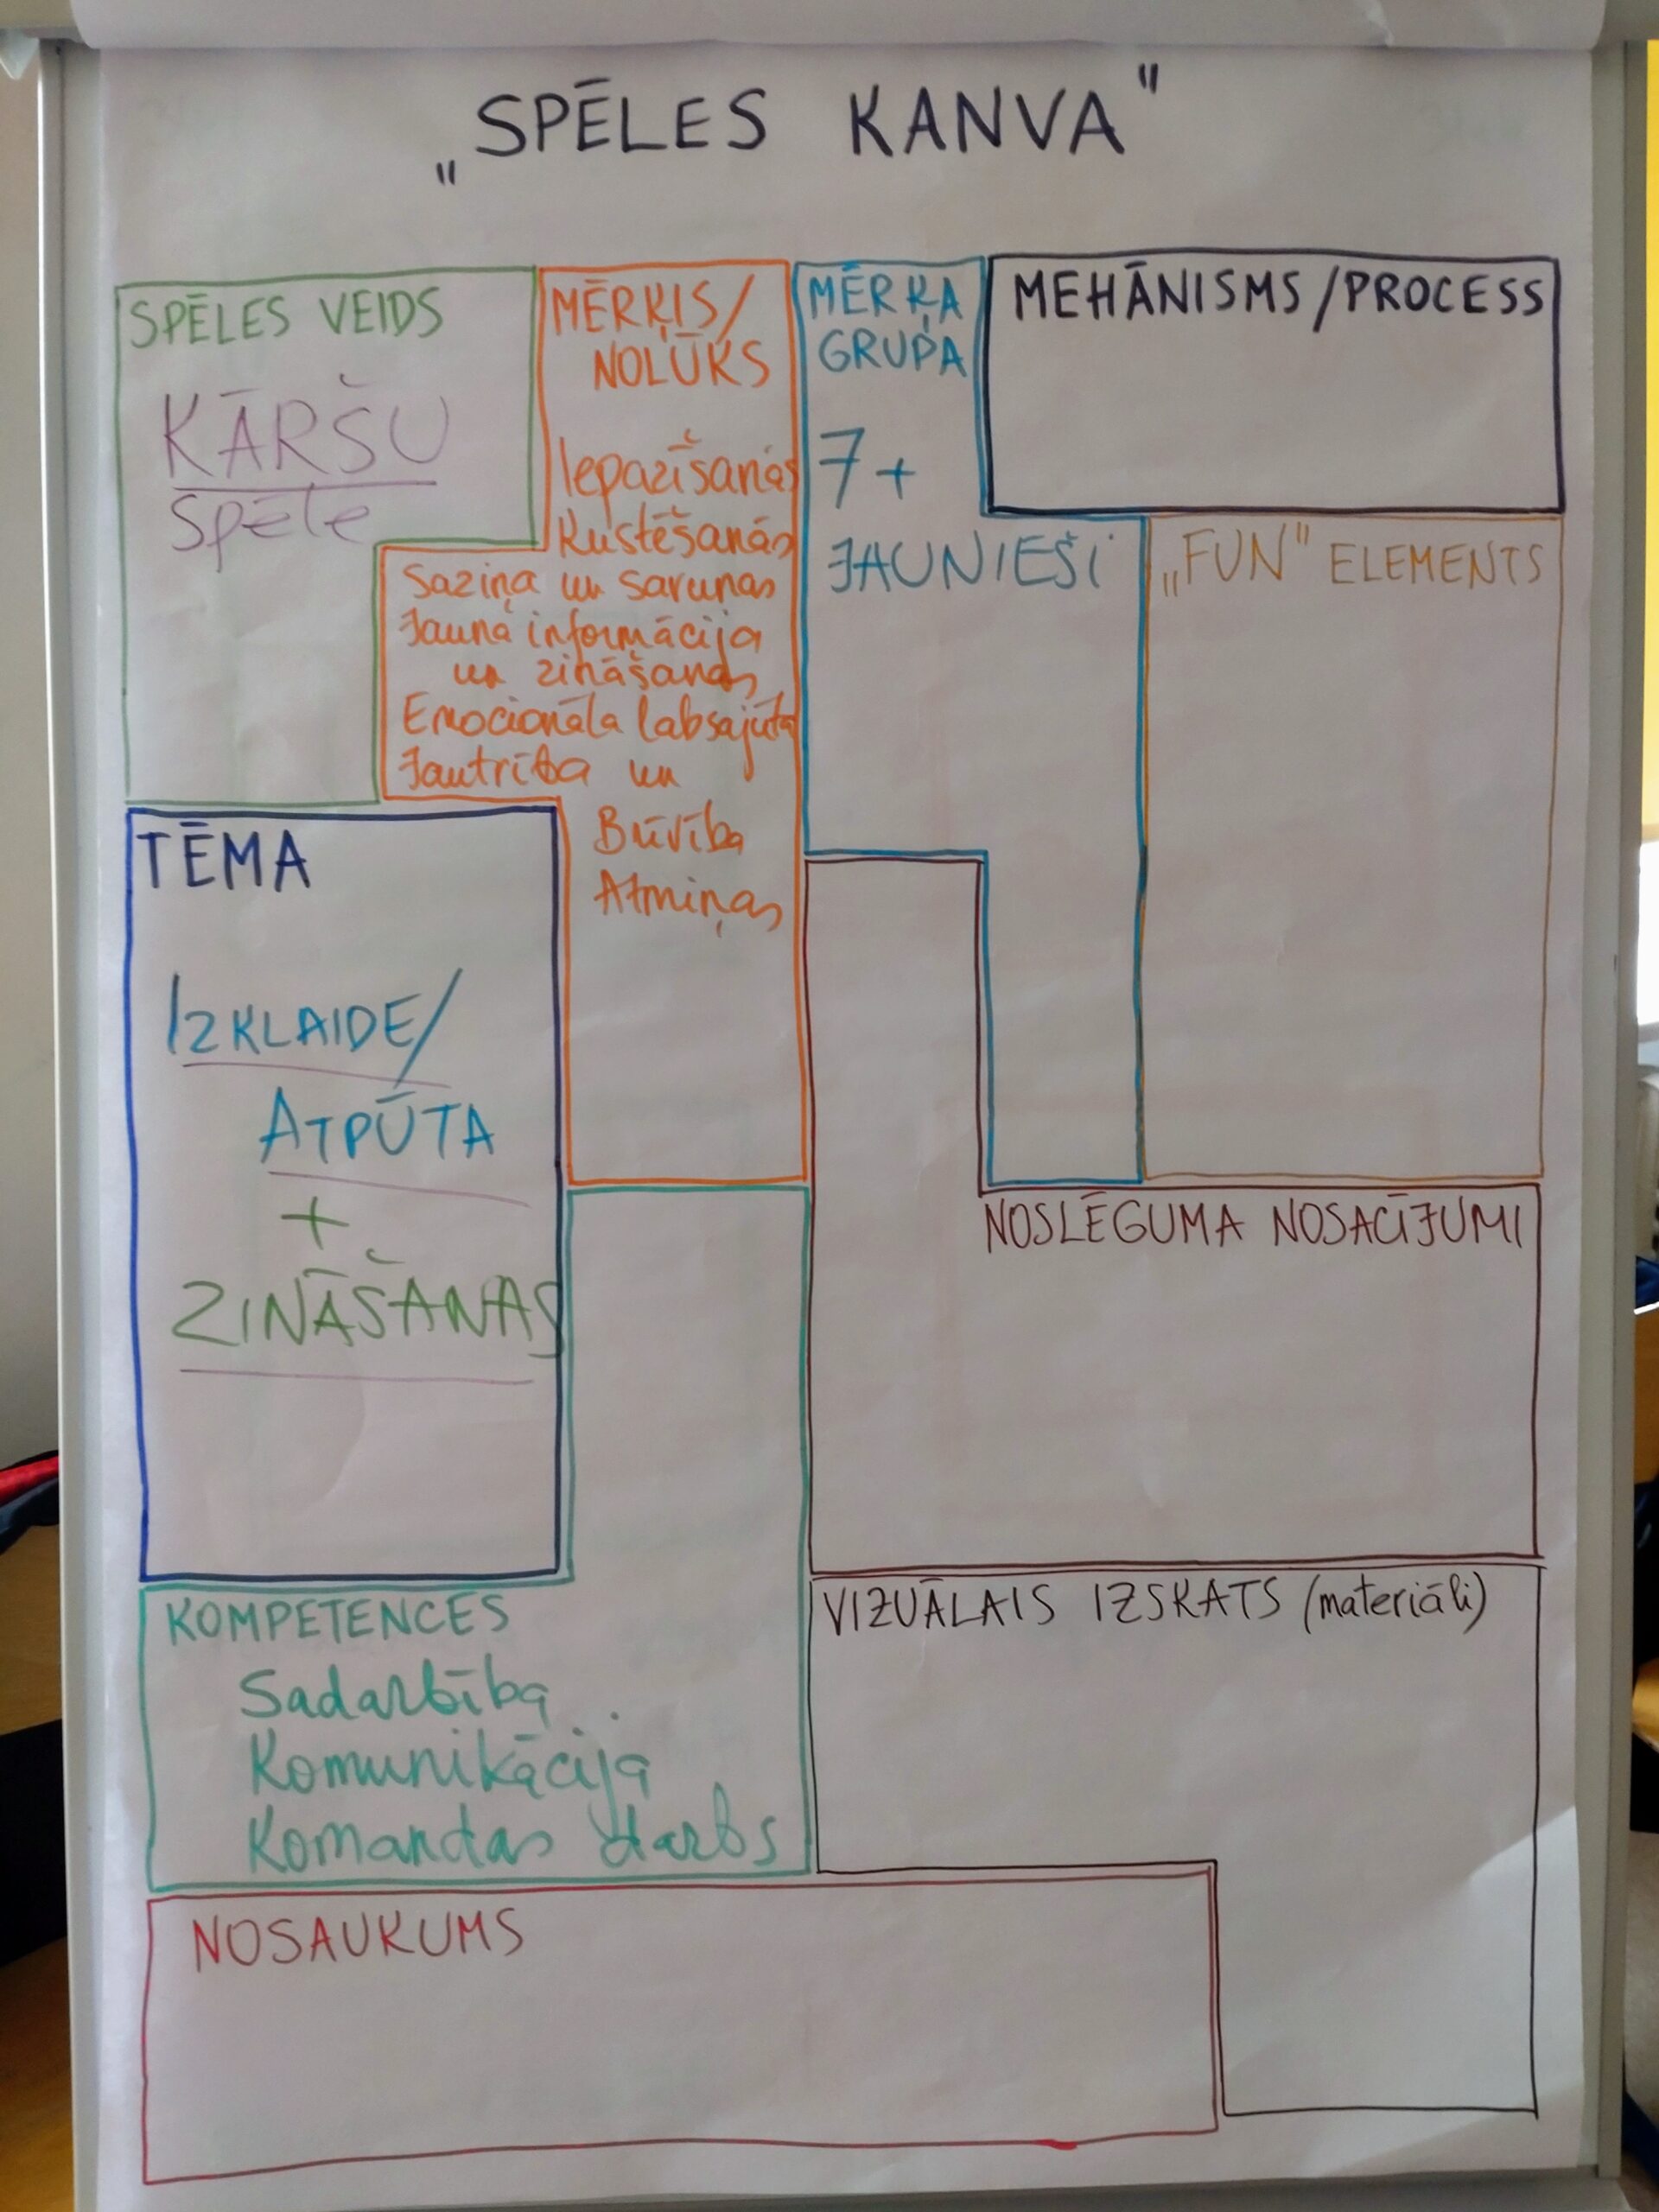 „SPĒLES KANVA"
SPĒLES VEIDS
KĀRŠU
Spēle
MĒRĶIS/
NOLŪKS
Iepazīšanās
Kustēšanās
Saziņa un sarunas
Jauna informācija
un zināšanas
Emocionāla labsajūta
Jautrība un
Brīvība
Atmiņas
MĒRĶA
GRUPA
7+
JAUNIEŠI
MEHĀNISMS/PROCESS
„FUN" ELEMENTS
TĒMA
IZKLAIDE/
ATPŪTA
+
ZINĀŠANAS
NOSLĒGUMA NOSACĪJUMI
KOMPETENCES
Sadarbība
Komunikācija
Komandas darbs
VIZUĀLAIS IZSKATS (materiāli)
NOSAUKUMS